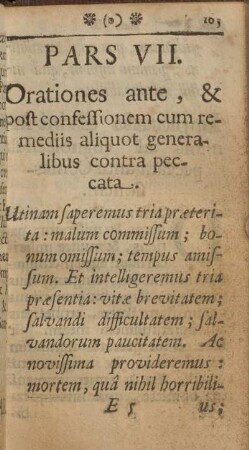 ❊ (o) ❊ 105
PARS VII.
Orationes ante, &
post confessionem cum re-
mediis aliquot genera-
libus contra pec-
cata.
Utinam saperemus tria præteri-
ta: malum commissum; bo-
num omissum; tempus amis-
sum. Et intelligeremus tria
præsentia: vitæ brevitatem;
salvandi difficultatem; sal-
vandorum paucitatem. Ac
novissima provideremus:
mortem, quâ nihil horribili-
E 5 us;